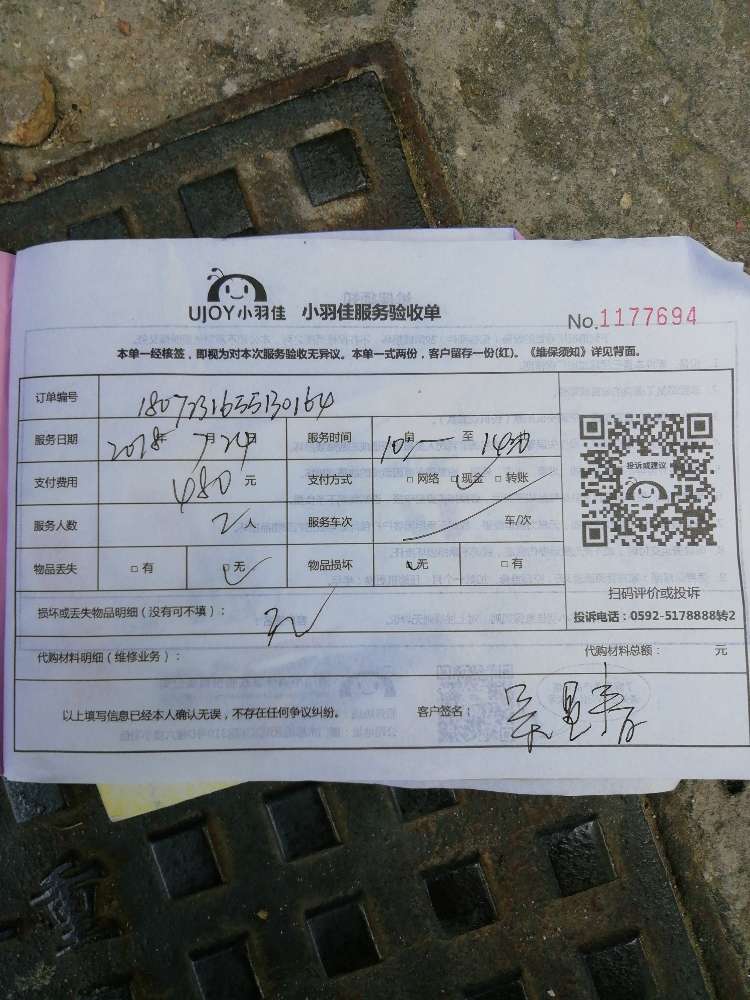 UJOY小羽佳 小羽佳服务验收单
No.1177694
本单一经核签，即视为对本次服务验收无异议。本单一式两份，客户留存一份(红)。《维保须知》详见背面。
订单编号 180723165530164
服务日期 2018年 7月24日 服务时间 10 自 至 14
支付费用 480 元 支付方式 □网络 □现金 □转账
投诉或建议
服务人数 2人 服务车次 车/次
物品丢失 □有 □无 物品损坏 □无 □有
扫码评价或投诉
损坏或丢失物品明细（没有可不填）： 无
投诉电话：0592-5178888转2
代购材料明细（维修业务）： 代购材料总额： 元
以上填写信息已经本人确认无误，不存在任何争议纠纷。 客户签名：
重